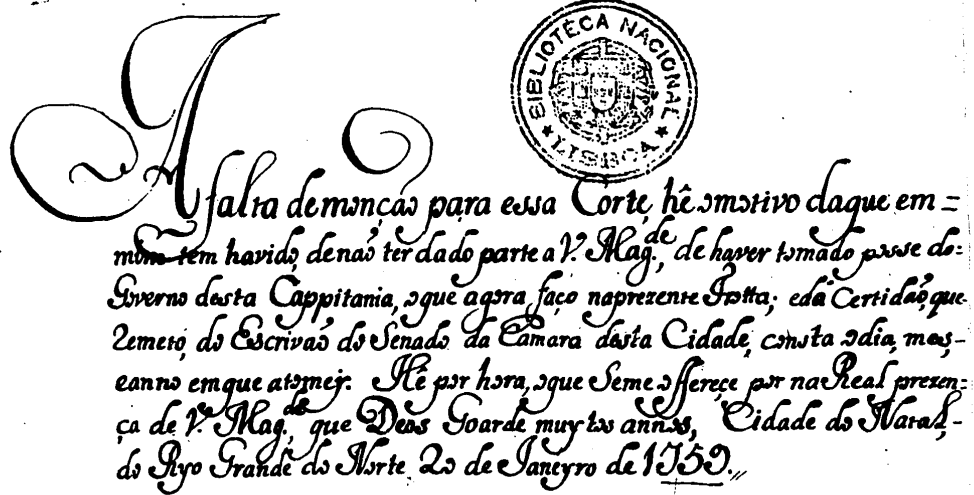 BIBLIOTECA NACIONAL
★ LISBOA ★
A falta demonção para essa Corte, hê omotivo daque em=
mim tem havido, denaõ ter dado parte a V. Mag.de, de haver tomado posse do=
Governo desta Cappitania, oque agora faço naprezente Frotta; edâ Certidaõ, que
Remeto, do Escrivaõ do Senado da Camara desta Cidade, consta odia, mes,-
eanno emque atomej. Hê por hora, oque Seme offereçe por na Real prezen=
ça de V. Mag.de, que Deos Goarde muytos annos, Cidade do Natal,-
do Ryo Grande do Norte 20 de Janeyro de 1759.